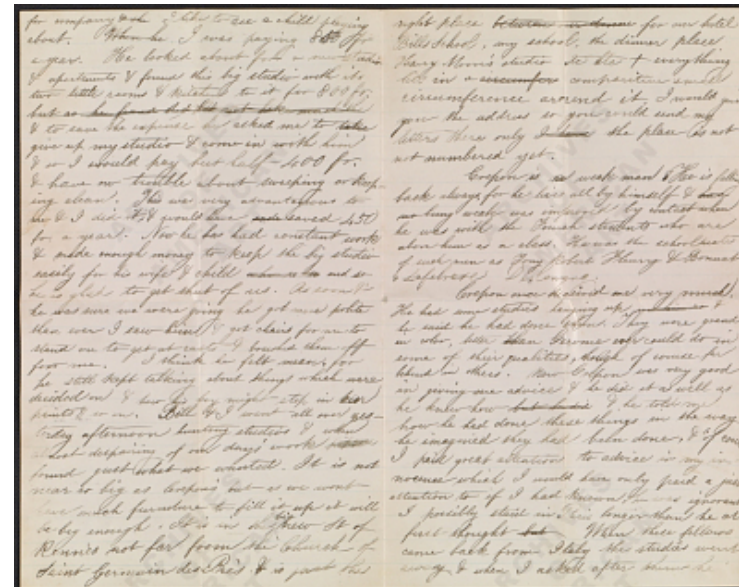 for company & I like to see a child playing
about. When he I was paying 850 fr
a year. He looked about for a new studio
& apartments & found this big studio with its
two little rooms & kitchen to it for 800 fr.
but as he found that
& to save the expense he asked me to take
give up my studio & come in with him
& so I would pay but half - 400 fr.
& have no trouble about sweeping or keep-
ing clean. This was very advantageous to
me & I did it & would have saved 450
fr. a year. Now he has had constant work
& made enough money to keep the big studio
easily for his wife & child and so
he is glad to get shut of us. As soon as
he was sure we were going he got more polite
than ever I saw him & got chairs for me to
stand on to get at casts I touched them off
for me. I think he felt mean, for
he still kept talking about things which were
decided on & how his foy might step in her
prints & so on. Bill & I went all over yes-
terday afternoon hunting studios & when
almost despairing of our days work
found just what we wanted. It is not
near so big as Crepon's but as we wont
have much furniture to fill it up it will
be big enough. It is in the new St of
Rennes not far from the Church of
Saint Germain des Prés & is just the
right place between for our hotel
Bills School, my school, the dinner place
Harry Moore's studio & everything
lie in a circumfer comparitive small
circumference around it, I would give
you the address so you could send my
letters there only I have the place is not
not numbered yet.
Crepon is a weak man & He is falling
back always for he lives all by himself &
by contact when
he was with the Roman students who are
above him as a class. He was the schoolmate
of such men as Tony Robert Fleury & Bonnat
& Lefebvre
Crepon once received me very
He had some studies hanging up
he said he had done They were grand
in color, better than Gerome ever could do in
some of their qualities, though of course far
behind in others. Now Crepon was very good
in giving me advice & he did it as well as
he knew how but & he told me
how he had done these things in the way
he imagined they had been done, & of course
I paid great attention to advice in my in-
nocence which I would have only paid a
attention to if I had known, I was ignorant
I possibly staid in longer than he at
first thought but When these fellows
came back from Italy the studies went
away & when I asked after them he